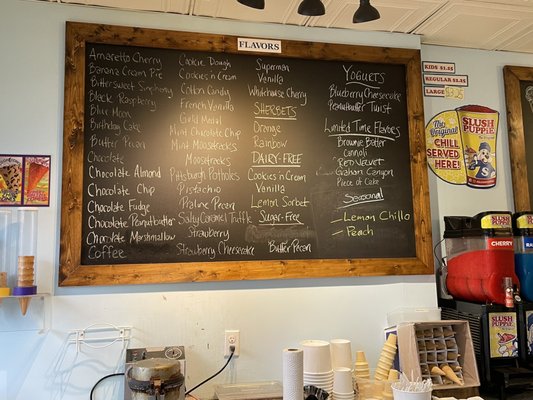 FLAVORS
Amaretto Cherry
Banana Cream Pie
Bittersweet Symphony
Black Raspberry
Blue Moon
Birthday Cake
Butter Pecan
Chocolate
Chocolate Almond
Chocolate Chip
Chocolate Fudge
Chocolate Peanutbutter
Chocolate Marshmallow
Coffee
Cookie Dough
Cookies n Cream
Cotton Candy
French Vanilla
Gold Medal
Mint Chocolate Chip
Mint Moosetracks
Moosetracks
Pittsburgh Potholes
Pistachio
Praline Pecan
Salty Caramel Truffle
Strawberry
Strawberry Cheesecake
Superman
Vanilla
Whitehouse Cherry
SHERBETS
Orange
Rainbow
DAIRY-FREE
Cookies n Cream
Vanilla
Lemon Sorbet
Sugar-Free
Butter Pecan
YOGURTS
Blueberry Cheesecake
Peanutbutter Twist
Limited Time Flavors
Brownie Butter
Cannoli
Red Velvet
Graham Canyon
Piece of Cake
Seasonal
- Lemon Chillo
- Peach
KIDS $1.25
REGULAR
LARGE
The Original
SLUSH PUPPiE
CHILL
SERVED
HERE!
SLUSH PUPPiE
CHERRY
SLUSH PUPPiE